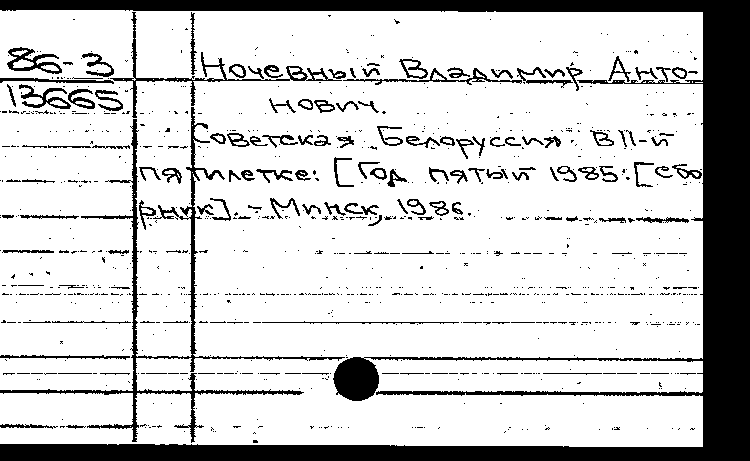 86-3
13665
Ночевный Владимир Анто-
нович.
Советская Белоруссия в 11-й
пятилетке: [Год пятый 1985: [сбо
рник]. - Минск, 1986.